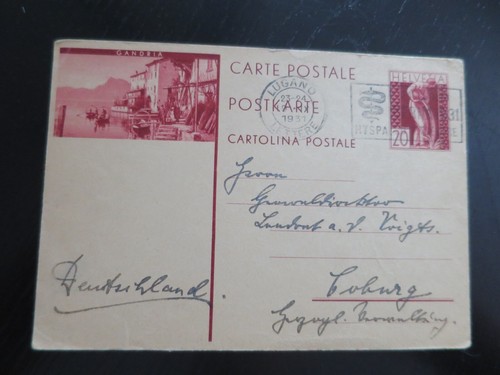 GANDRIA
CARTE POSTALE
POSTKARTE
CARTOLINA POSTALE
LUGANO
1931
LETTERE
HELVETIA
20
HYSPA
Herrn
Generaldirektor
a. D. Voigts.
Coburg
Herzogl. Verwaltung.
Deutschland.